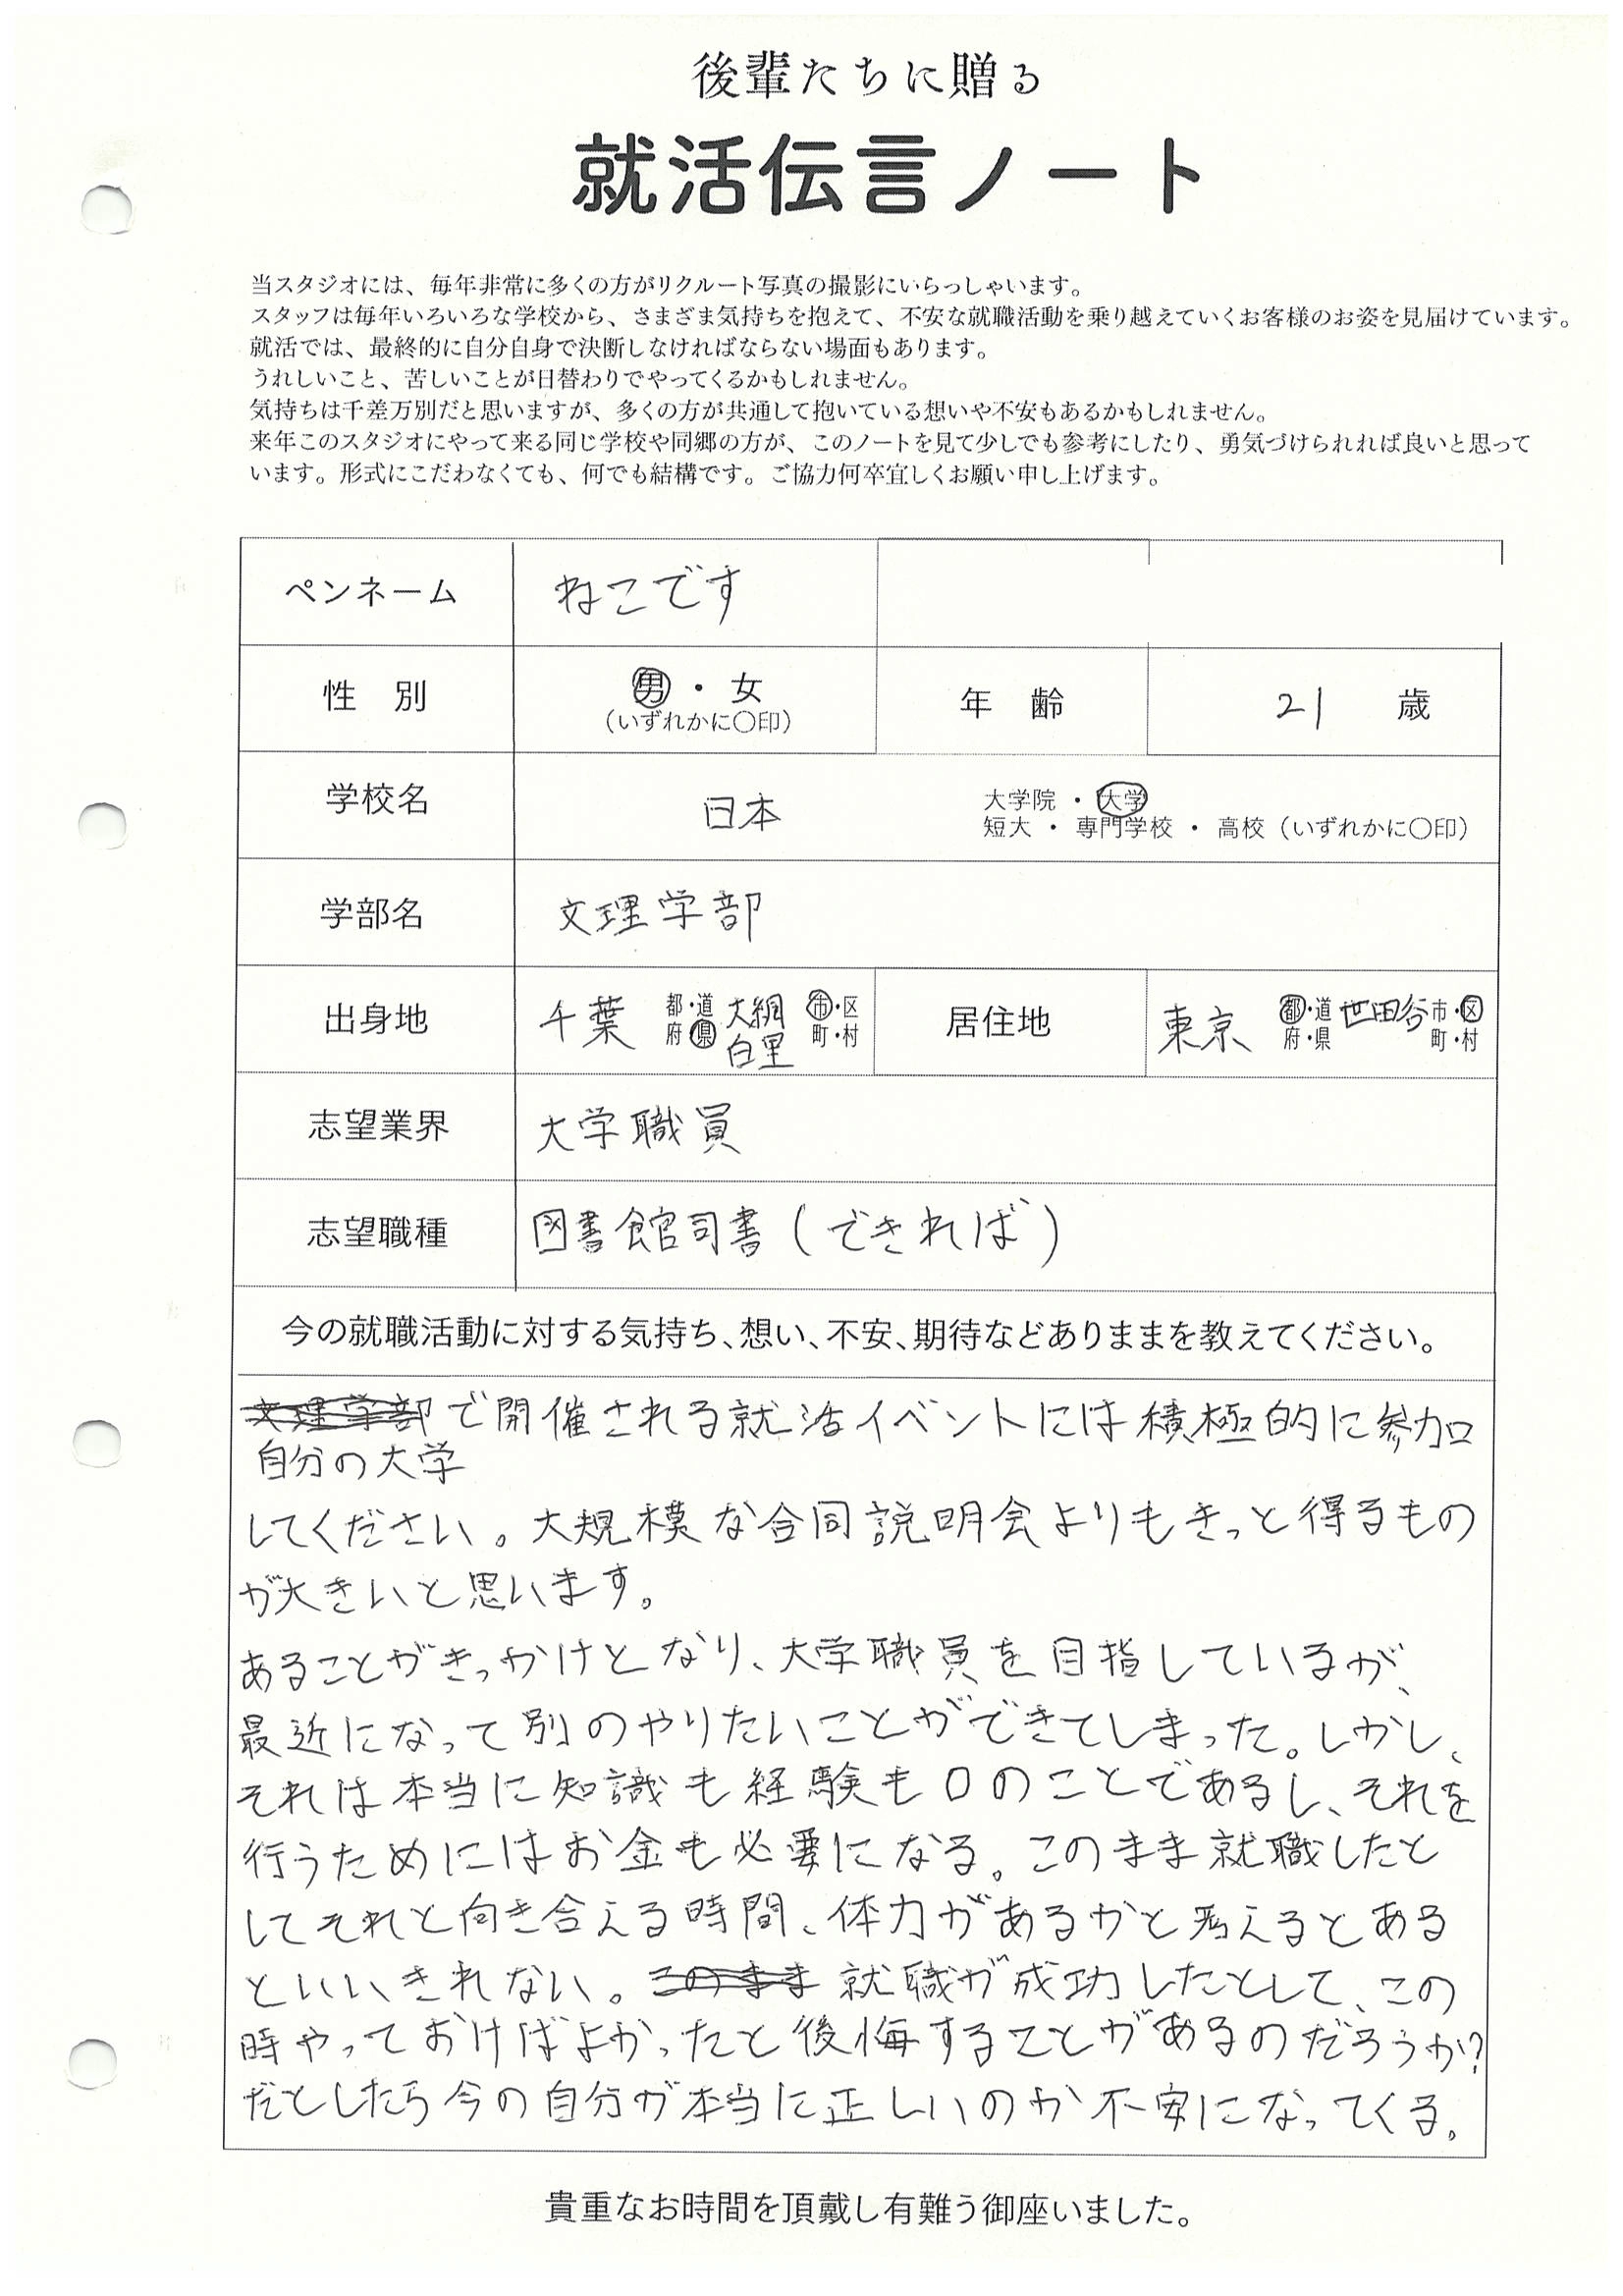 後輩たちに贈る
就活伝言ノート
当スタジオには、毎年非常に多くの方がリクルート写真の撮影にいらっしゃいます。
スタッフは毎年いろいろな学校から、さまざま気持ちを抱えて、不安な就職活動を乗り越えていくお客様のお姿を見届けています。
就活では、最終的に自分自身で決断しなければならない場面もあります。
うれしいこと、苦しいことが日替わりでやってくるかもしれません。
気持ちは千差万別だと思いますが、多くの方が共通して抱いている想いや不安もあるかもしれません。
来年このスタジオにやって来る同じ学校や同郷の方が、このノートを見て少しでも参考にしたり、勇気づけられれば良いと思って
います。形式にこだわなくても、何でも結構です。ご協力何卒宜しくお願い申し上げます。
ペンネーム ねこです
性 別 男・女 年 齢 21 歳
(いずれかに〇印)
学校名 日本 大学院・大学
短大・専門学校・高校(いずれかに〇印)
学部名 文理学部
出身地 千葉 都・道 府・県 大網白里 市・区 町・村 居住地 東京 都・道 府・県 世田谷 市・区 町・村
志望業界 大学職員
志望職種 図書館司書(できれば)
今の就職活動に対する気持ち、想い、不安、期待などありままを教えてください。
文理学部で開催される就活イベントには積極的に参加
自分の大学
してください。大規模な合同説明会よりもきっと得るもの
が大きいと思います。
あることがきっかけとなり、大学職員を目指しているが、
最近になって別のやりたいことができてしまった。しかし、
それは本当に知識も経験も0のことであるし、それを
行うためにはお金も必要になる。このまま就職したと
してそれと向き合える時間、体力があるかと考えるとある
といいきれない。このまま就職が成功したとして、この
時やっておけばよかったと後悔することがあるのだろうか?
だとしたら今の自分が本当に正しいのか不安になってくる。
貴重なお時間を頂戴し有難う御座いました。